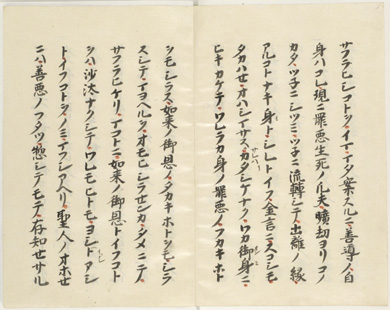 サフラヒシコトヲイママタ案スルニ善導ノ自
身ハコレ現ニ罪悪生死ノ凡夫曠劫ヨリコノ
カタツネニシツミツネニ流轉シテ出離ノ縁
アルコトナキ身トシレトイフ金言ニスコシモ
タカハセオハシマサスサレハカタシケナクワカ御身ニ
ヒキカケテワレラカ身ノ罪悪ノフカキホト
シモシラス如来ノ御恩ノタカキホトシモシラ
スシテマヨヘルヲオモヒシラセンカタメニテ
サフラヒケリマコトニ如来ノ御恩トイフコト
シハ沙汰ナクシテワレモヒトモヨシアシ
トイフコトヲノミマフシアヘリ聖人ノオホセ
ニハ善悪ノフタツ惣シテモテ存知セサル